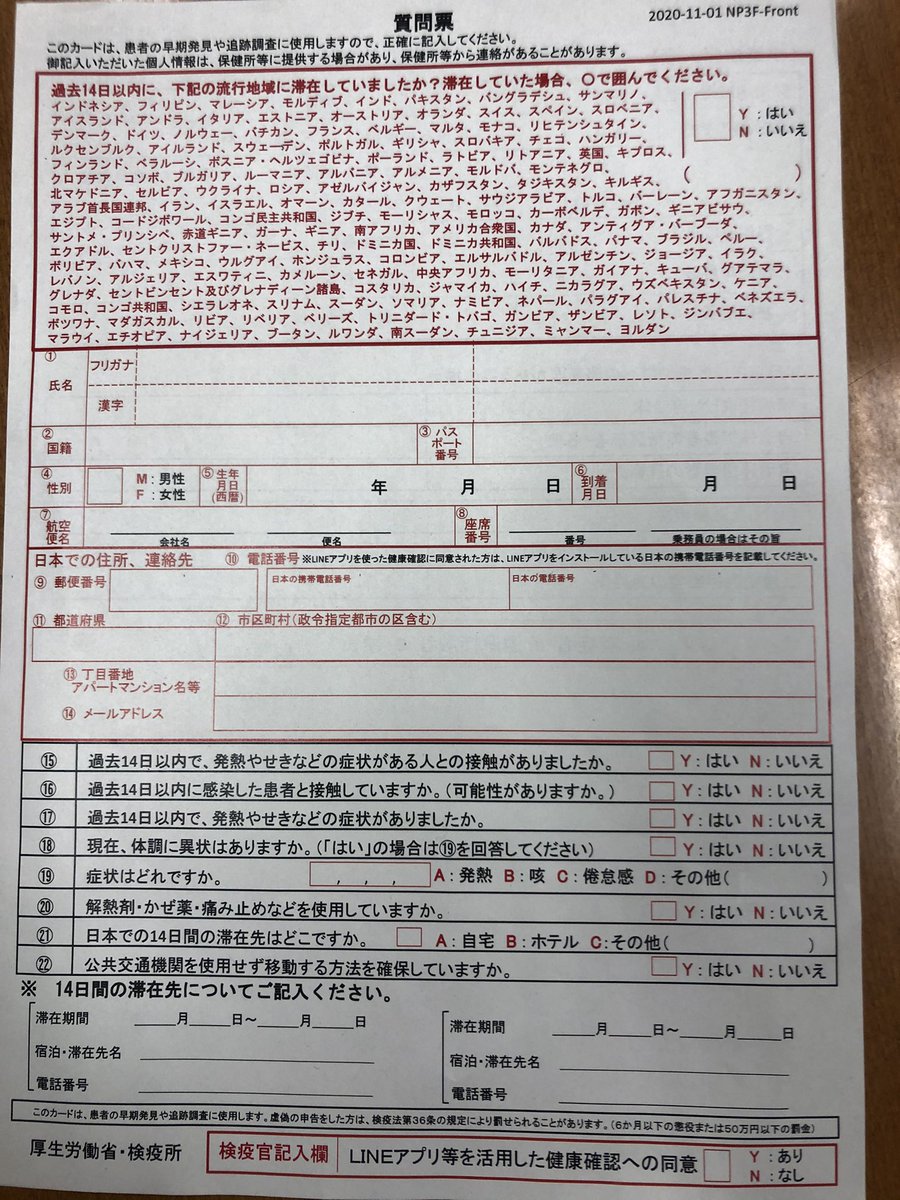 質問票
2020-11-01 NP3F-Front
このカードは、患者の早期発見や追跡調査に使用しますので、正確に記入してください。
御記入いただいた個人情報は、保健所等に提供する場合があり、保健所等から連絡があることがあります。
過去14日以内に、下記の流行地域に滞在していましたか？滞在していた場合、○で囲んでください。
インドネシア、フィリピン、マレーシア、モルディブ、インド、パキスタン、バングラデシュ、サンマリノ、
アイスランド、アンドラ、イタリア、エストニア、オーストリア、オランダ、スイス、スペイン、スロベニア、
デンマーク、ドイツ、ノルウェー、バチカン、フランス、ベルギー、マルタ、モナコ、リヒテンシュタイン、
ルクセンブルク、アイルランド、スウェーデン、ポルトガル、ギリシャ、スロバキア、チェコ、ハンガリー、
フィンランド、ベラルーシ、ボスニア・ヘルツェゴビナ、ポーランド、ラトビア、リトアニア、英国、キプロス、
クロアチア、コソボ、ブルガリア、ルーマニア、アルバニア、アルメニア、モルドバ、モンテネグロ、
北マケドニア、セルビア、ウクライナ、ロシア、アゼルバイジャン、カザフスタン、タジキスタン、キルギス、
アラブ首長国連邦、イラン、イスラエル、オマーン、カタール、クウェート、サウジアラビア、トルコ、バーレーン、アフガニスタン、
エジプト、コードジボワール、コンゴ民主共和国、ジブチ、モーリシャス、モロッコ、カーボベルデ、ガボン、ギニアビサウ、
サントメ・プリンシペ、赤道ギニア、ガーナ、ギニア、南アフリカ、アメリカ合衆国、カナダ、アンティグア・バーブーダ、
エクアドル、セントクリストファー・ネービス、チリ、ドミニカ国、ドミニカ共和国、バルバドス、パナマ、ブラジル、ペルー、
ボリビア、バハマ、メキシコ、ウルグアイ、ホンジュラス、コロンビア、エルサルバドル、アルゼンチン、ジョージア、イラク、
レバノン、アルジェリア、エスワティニ、カメルーン、セネガル、中央アフリカ、モーリタニア、ガイアナ、キューバ、グアテマラ、
グレナダ、セントビンセント及びグレナディーン諸島、コスタリカ、ジャマイカ、ハイチ、ニカラグア、ウズベキスタン、ケニア、
コモロ、コンゴ共和国、シエラレオネ、スリナム、スーダン、ソマリア、ナミビア、ネパール、パラグアイ、パレスチナ、ベネズエラ、
ボツワナ、マダガスカル、リビア、リベリア、ベリーズ、トリニダード・トバゴ、ガンビア、ザンビア、レソト、ジンバブエ、
マラウイ、エチオピア、ナイジェリア、ブータン、ルワンダ、南スーダン、チュニジア、ミャンマー、ヨルダン
Y：はい
N：いいえ
(　　　)
① 氏名
フリガナ
漢字
② 国籍
③ パスポート番号
④ 性別
M：男性
F：女性
⑤ 生年月日(西暦)
年　月　日
⑥ 到着月日
月　日
⑦ 航空便名
会社名　便名
⑧ 座席番号
番号　乗務員の場合はその旨
日本での住所、連絡先
⑩ 電話番号 ※LINEアプリを使った健康確認に同意された方は、LINEアプリをインストールしている日本の携帯電話番号を記載してください。
⑨ 郵便番号
日本の携帯電話番号
日本の電話番号
⑪ 都道府県
⑫ 市区町村(政令指定都市の区含む)
⑬ 丁目番地
アパートマンション名等
⑭ メールアドレス
⑮ 過去14日以内で、発熱やせきなどの症状がある人との接触がありましたか。 Y：はい N：いいえ
⑯ 過去14日以内に感染した患者と接触していますか。(可能性がありますか。) Y：はい N：いいえ
⑰ 過去14日以内で、発熱やせきなどの症状がありましたか。 Y：はい N：いいえ
⑱ 現在、体調に異状はありますか。(「はい」の場合は⑲を回答してください) Y：はい N：いいえ
⑲ 症状はどれですか。 , , , A：発熱 B：咳 C：倦怠感 D：その他(　　　)
⑳ 解熱剤・かぜ薬・痛み止めなどを使用していますか。 Y：はい N：いいえ
㉑ 日本での14日間の滞在先はどこですか。 A：自宅 B：ホテル C：その他(　　　)
㉒ 公共交通機関を使用せず移動する方法を確保していますか。 Y：はい N：いいえ
※ 14日間の滞在先についてご記入ください。
滞在期間 ____月____日～____月____日
宿泊・滞在先名
電話番号
滞在期間 ____月____日～____月____日
宿泊・滞在先名
電話番号
このカードは、患者の早期発見や追跡調査に使用します。虚偽の申告をした方は、検疫法第36条の規定により罰せられることがあります。(6か月以下の懲役または50万円以下の罰金)
厚生労働省・検疫所
検疫官記入欄
LINEアプリ等を活用した健康確認への同意
Y：あり
N：なし